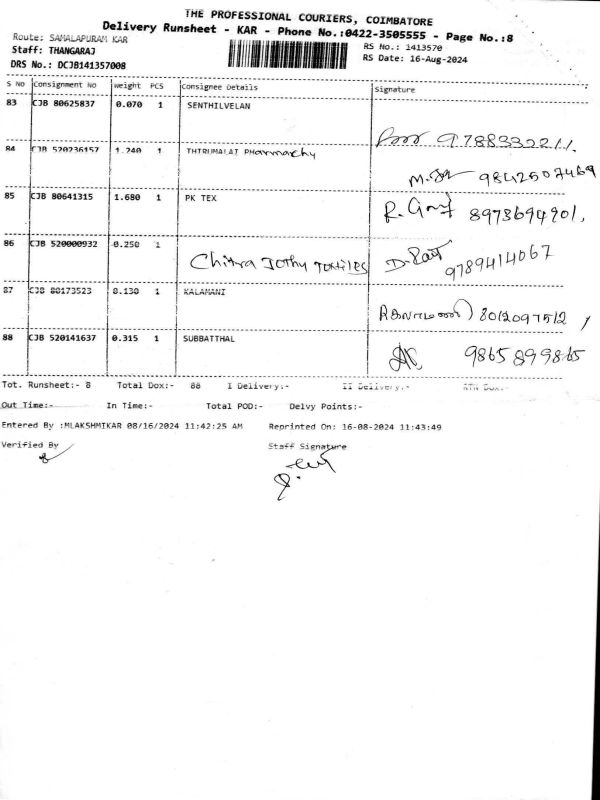 THE PROFESSIONAL COURIERS, COIMBATORE
Delivery Runsheet - KAR - Phone No.:0422-3505555 - Page No.:8
Route: SAMALAPURAM KAR
RS No.: 1413570
Staff: THANGARAJ
RS Date: 16-Aug-2024
DRS No.: DCJB141357008
S No Consignment No Weight PCS Consignee Details Signature
83 CJB 80625837 0.070 1 SENTHILVELAN
9788332211.
84 CJB 520236157 1.240 1 THIRUMALAI Pharmarchy
9842507469
85 CJB 80641315 1.680 1 PK TEX
8973694901,
86 CJB 520000932 0.250 1
Chitra Jothy Textiles 9789414067
87 CJB 80173523 0.130 1 KALAMANI
8012097512,
88 CJB 520141637 0.315 1 SUBBATTHAL
9865899865
Tot. Runsheet:- 8 Total Dox:- 88 I Delivery:- II Delivery:- RTN Dox:-
Out Time:- In Time:- Total POD:- Delvy Points:-
Entered By :MLAKSHMIKAR 08/16/2024 11:42:25 AM Reprinted On: 16-08-2024 11:43:49
Verified By Staff Signature